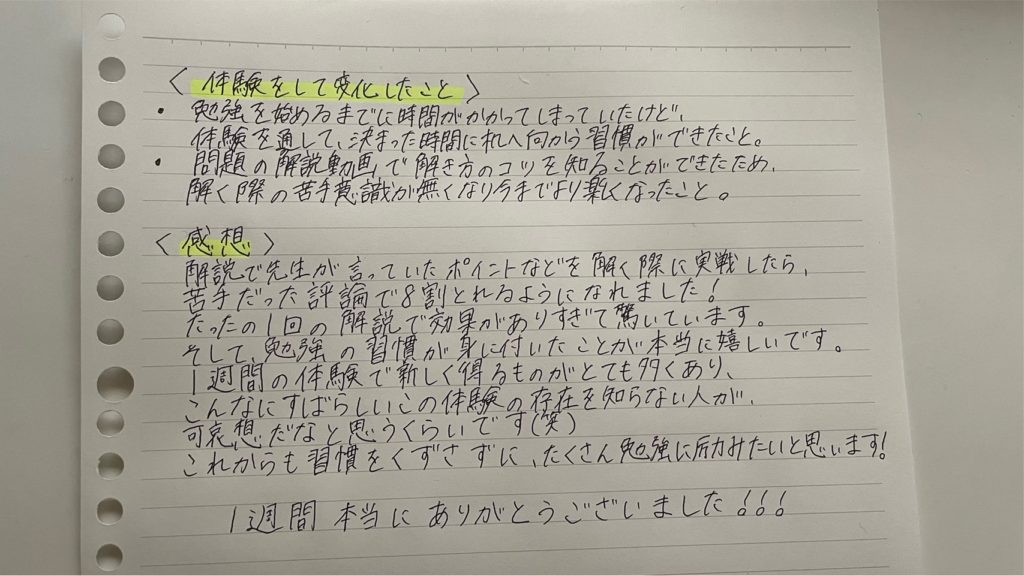 〈 体験をして変化したこと 〉
・ 勉強を始めるまでに時間がかかってしまっていたけど、
体験を通して、決まった時間に机へ向かう習慣ができたこと。
・ 問題の解説動画で解き方のコツを知ることができたため、
解く際の苦手意識が無くなり今までより楽しくなったこと。
〈 感想 〉
解説で先生が言っていたポイントなどを解く際に実戦したら、
苦手だった評論で8割とれるようになれました!
たったの1回の解説で効果がありすぎて驚いています。
そして、勉強の習慣が身に付いたことが本当に嬉しいです。
1週間の体験で新しく得るものがとても多くあり、
こんなにすばらしいこの体験の存在を知らない人が、
可哀想だなと思うくらいです(笑)
これからも習慣をくずさずに、たくさん勉強に励みたいと思います!
1週間本当にありがとうございました!!!